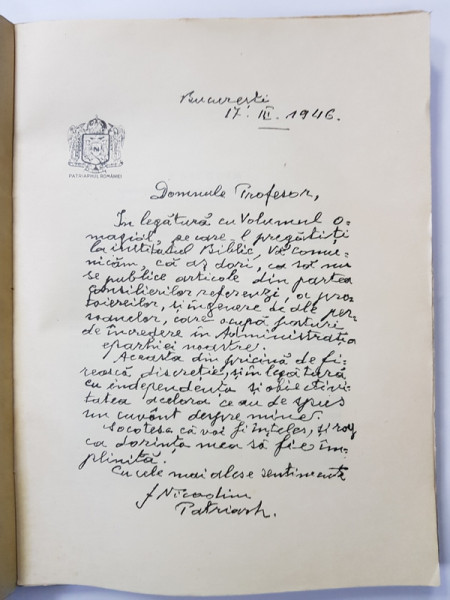 București
17. II. 1946.
PATRIARHUL ROMÂNIEI
Domnule Profesor,
In legătură cu Volumul O-
magial, pe care-l pregătiți
la institutul Biblic, Vă comu-
nicăm, că aș dori, ca să nu
se publice articole din partea
consilierilor referenzi, a pro-
toiereilor, și în genere de ale per-
soanelor, care ocupă posturi
de încredere în Administratia
eparhiei noastre.
Aceasta din pricină de fi-
rească discreție, și în legătură
cu independența și obiectivi-
tatea acelora, ce au de spus
un cuvânt despre mine.
Socotesc că voi fi înțeles, și rog
ca dorința mea să fie îm-
plinită.
Cu cele mai alese sentimente
Nicodim
Patriarh.